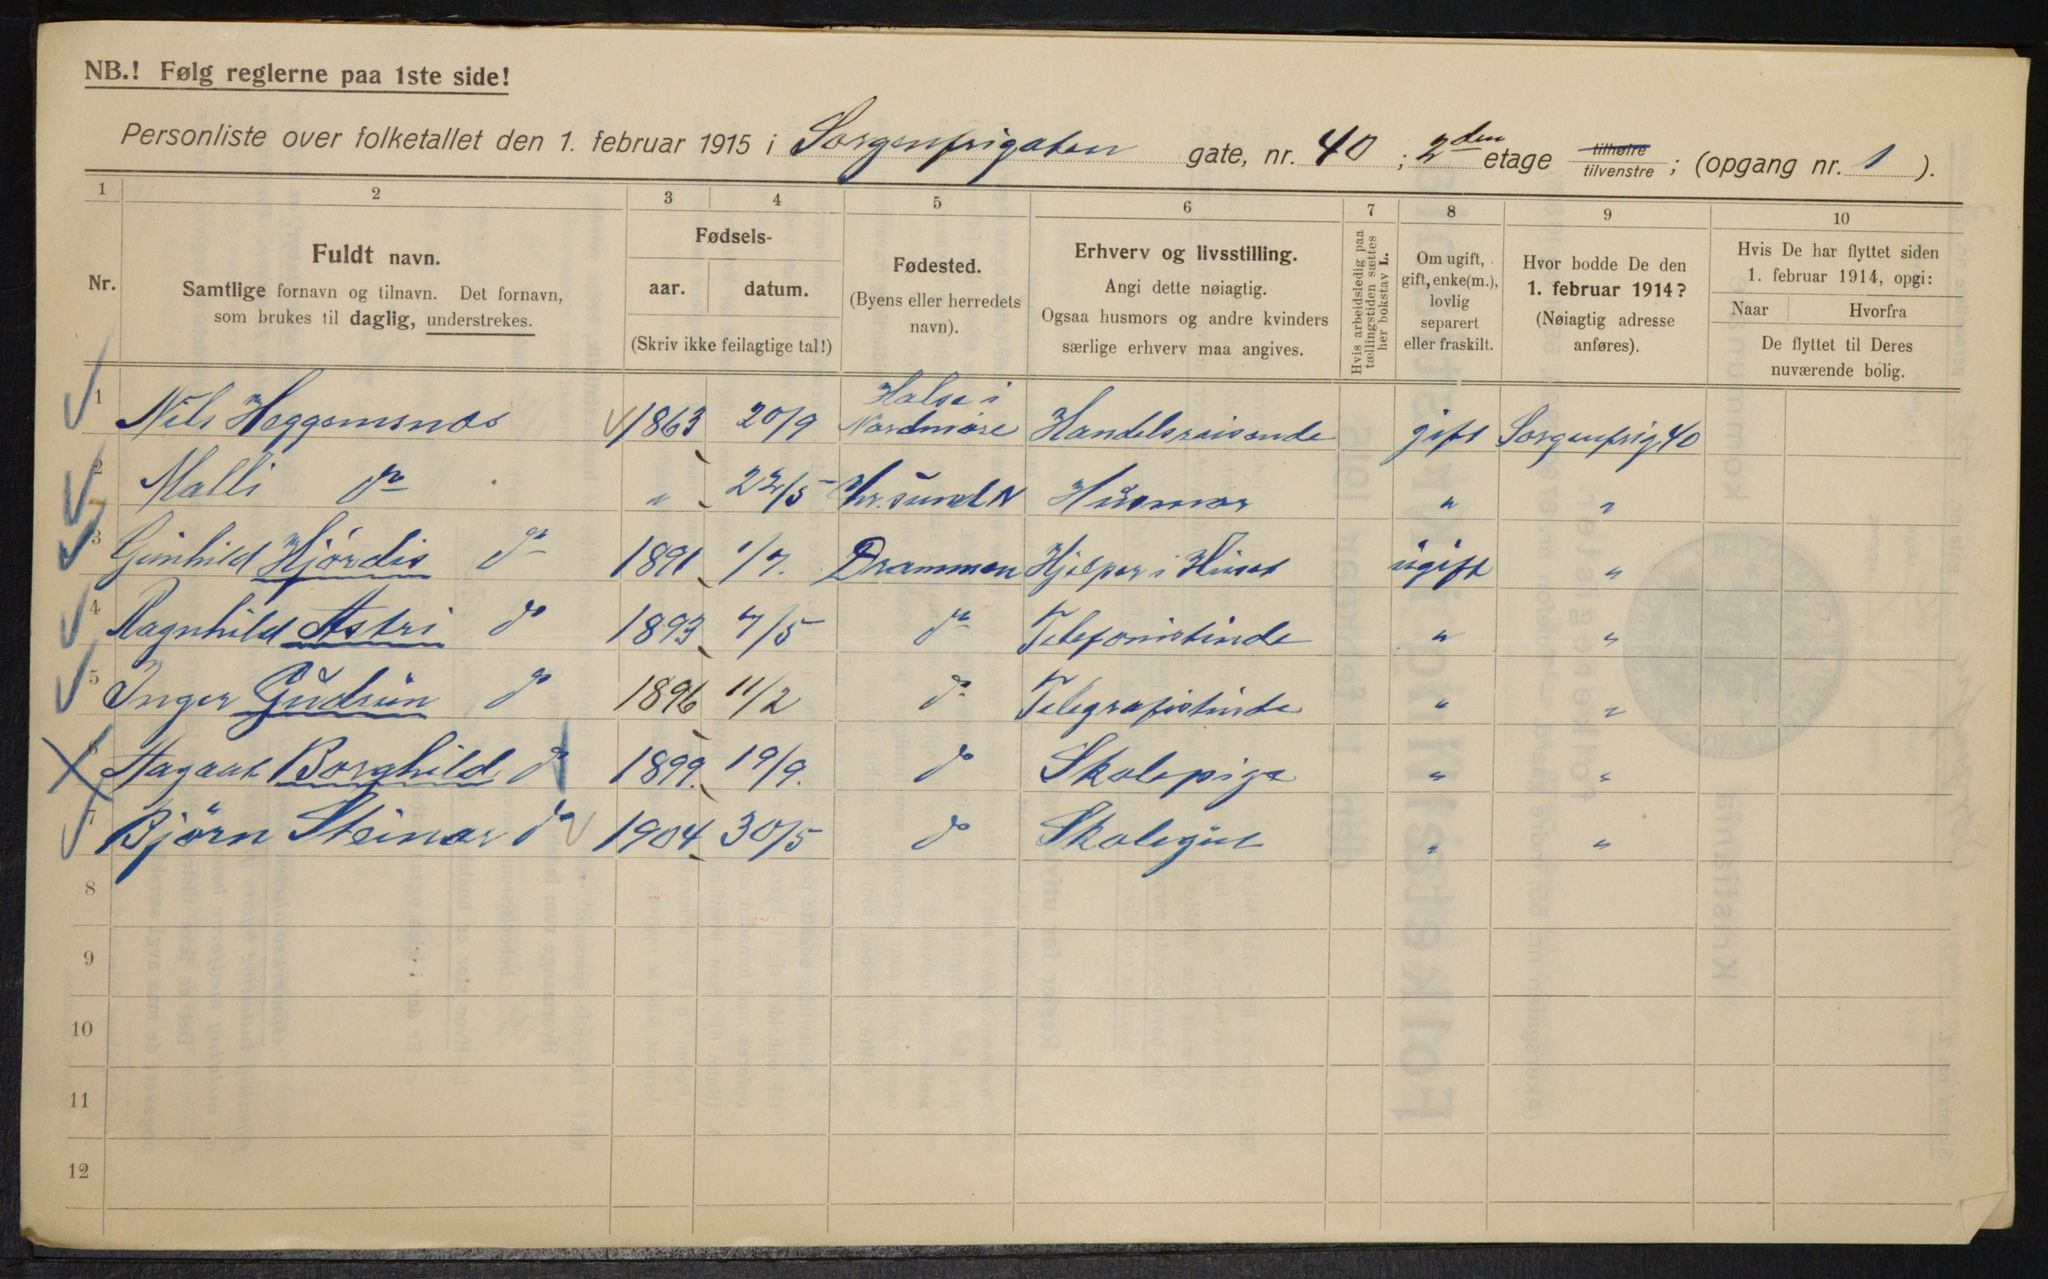 NB.! Følg reglerne paa 1ste side!
Personliste over folketallet den 1. februar 1915 i Sorgenfrigaten gate, nr. 40 ; 2den etage tilhøire tilvenstre ; (opgang nr. 1 ).
1 2 3 4 5 6 7 8 9 10
Nr.
Fuldt navn.
Samtlige fornavn og tilnavn. Det fornavn,
som brukes til daglig, understrekes.
Fødsels-
aar. datum.
(Skriv ikke feilagtige tal!)
Fødested.
(Byens eller herredets
navn).
Erhverv og livsstilling.
Angi dette nøiagtig.
Ogsaa husmors og andre kvinders
særlige erhverv maa angives.
Hvis arbeidsledig paa
tællingstiden sættes
her bokstav L.
Om ugift,
gift, enke(m.),
lovlig
separert
eller fraskilt.
Hvor bodde De den
1. februar 1914?
(Nøiagtig adresse
anføres).
Hvis De har flyttet siden
1. februar 1914, opgi:
Naar Hvorfra
De flyttet til Deres
nuværende bolig.
1 Nils Heggemsnæs 1863 20/9 Halse i Nordmøre Handelsreisende gift Sorgenfrig 40
2 Malli do " 22/5 Kr.sund N Husmor " "
3 Gunhild Hjørdis do 1891 1/7. Drammen Hjelper i Huset ugift "
4 Ragnhild Astri do 1893 7/5 do Telefonistinde " "
5 Inger Gudrun do 1896 11/2 do Telegrafistinde " "
6 Aagaat Borghild do 1899. 19/9. do Skolepige " "
7 Bjørn Steinar do 1904 30/5 do Skolegut " "
8
9
10
11
12